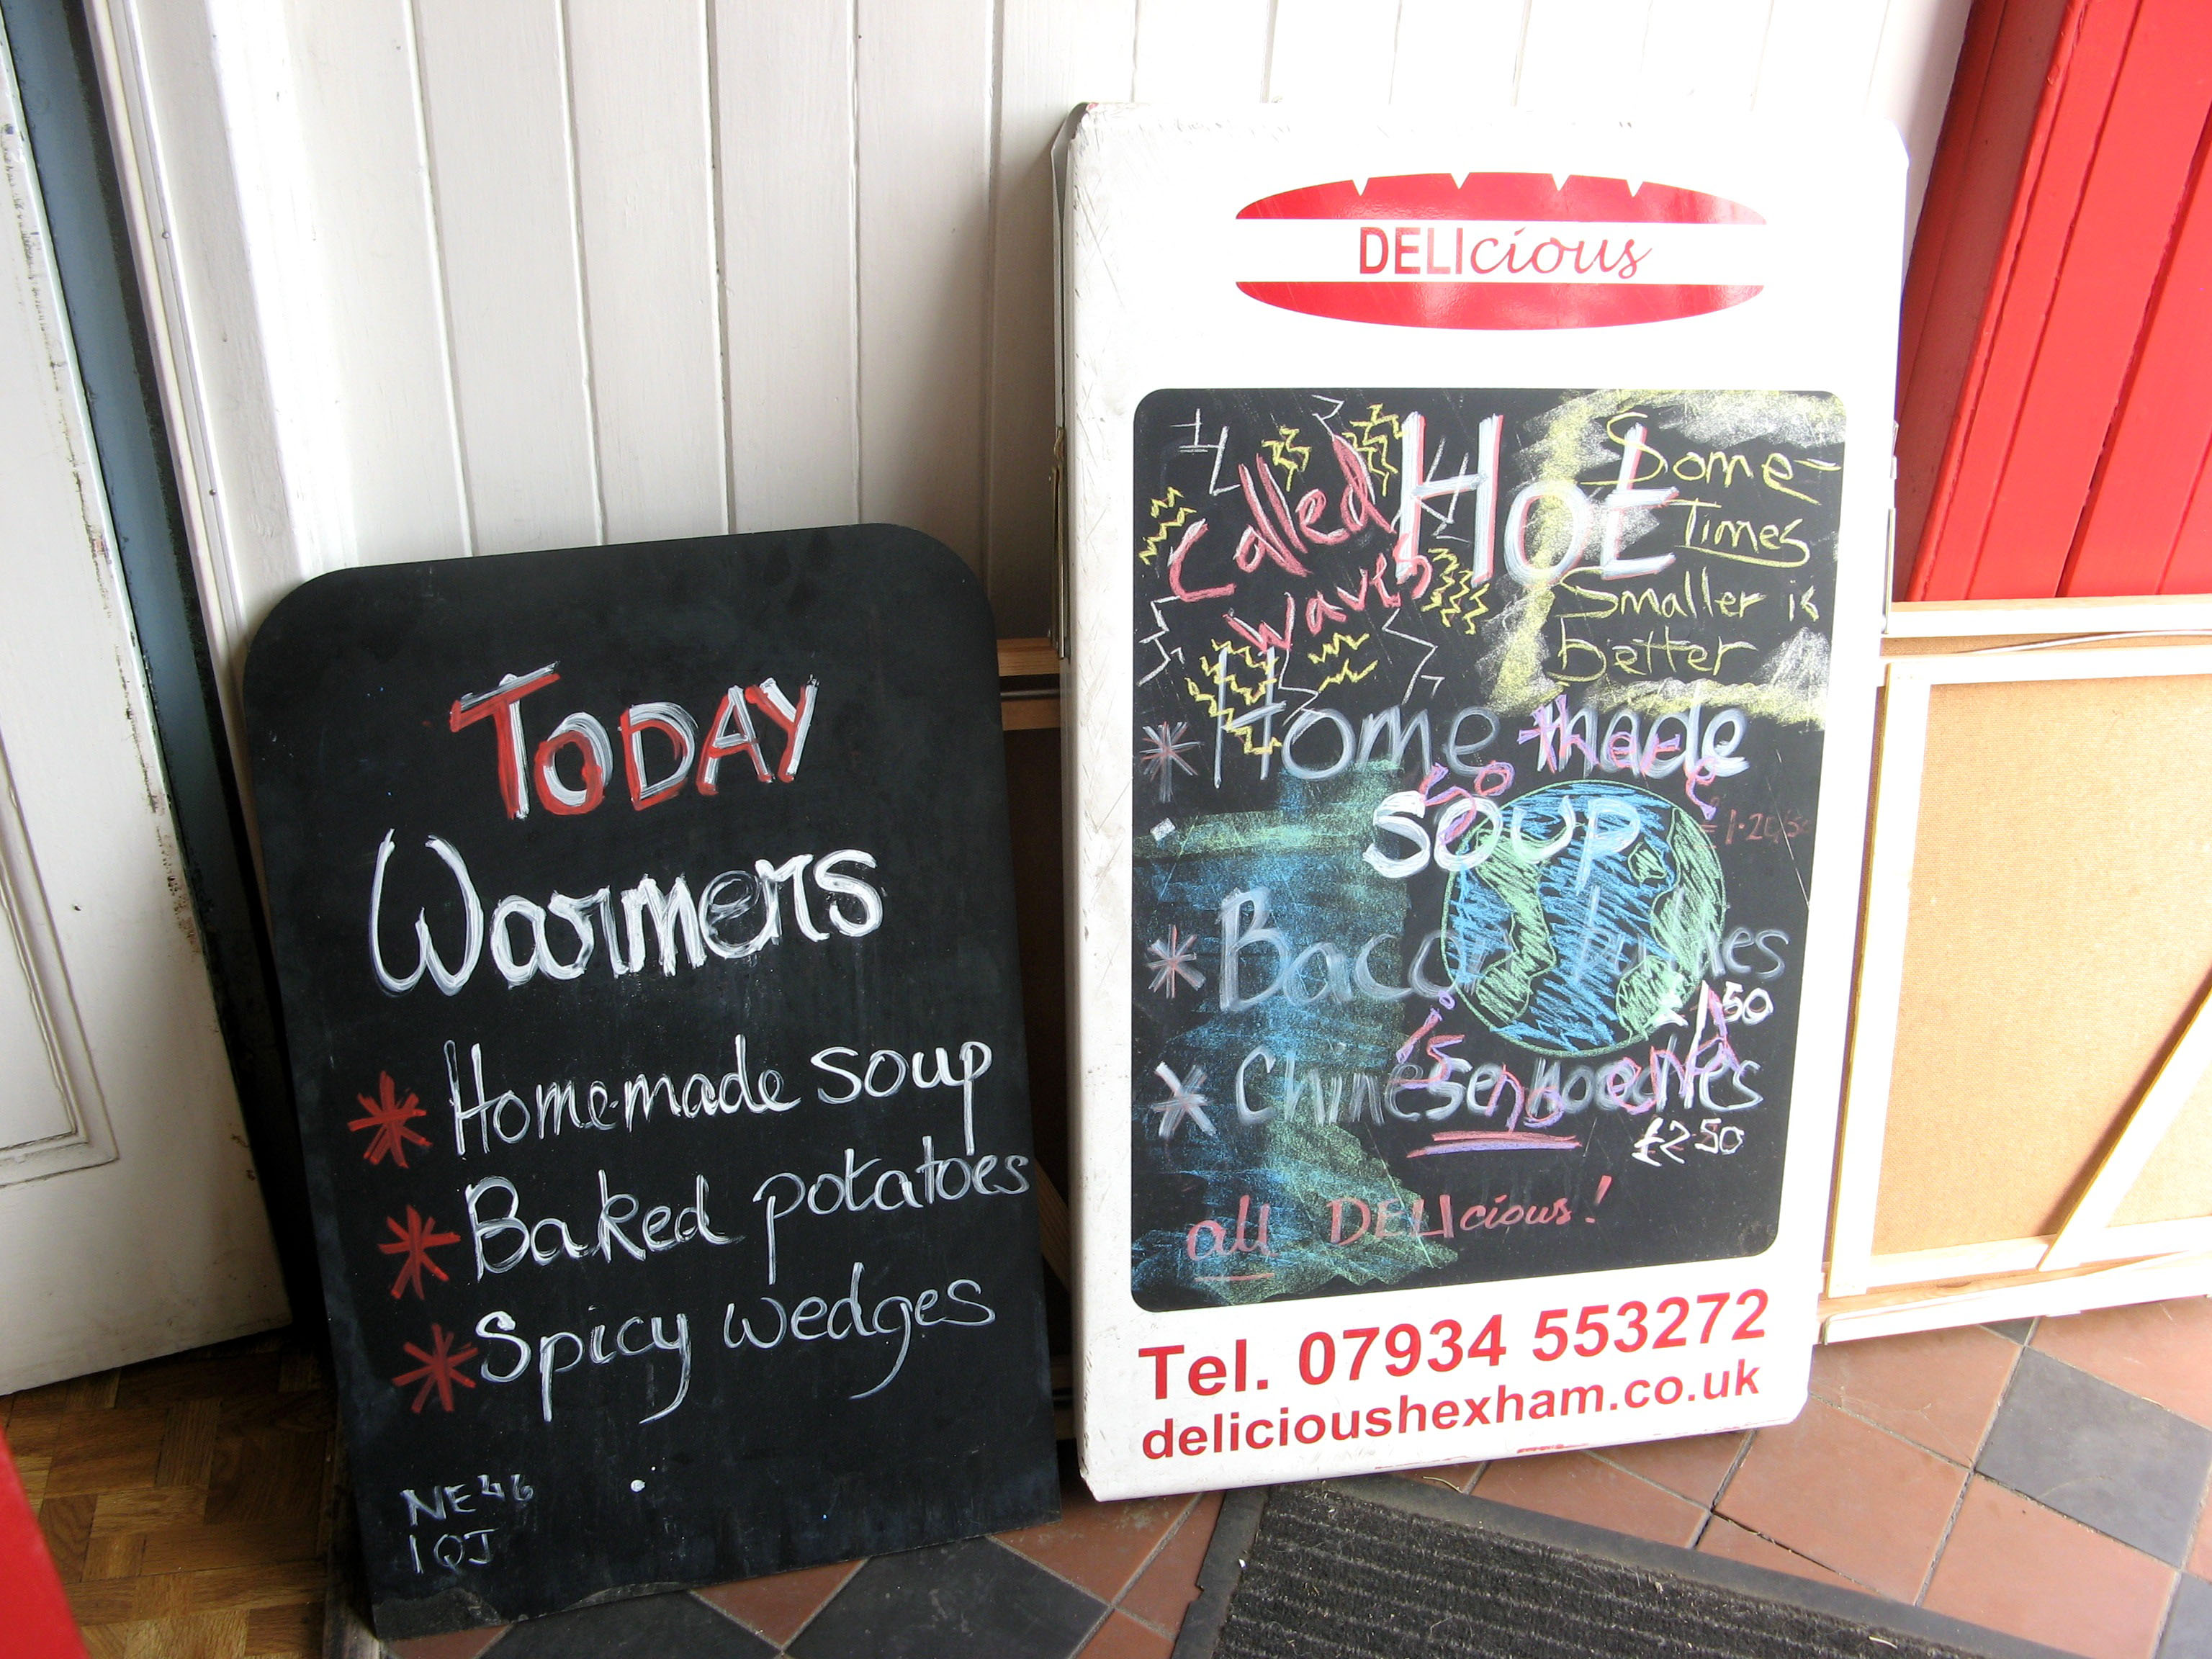 TODAY
Warmers
* Homemade soup
* Baked potatoes
* Spicy wedges
NE46
1QJ
DELIcious
Called
waves
Hot
Some-
Times
Smaller is
better
* Home made
there
so
soup
* Bacon
£1.50
is
* Chinese noodles
no end
£2.50
all DELIcious!
Tel. 07934 553272
delicioushexham.co.uk